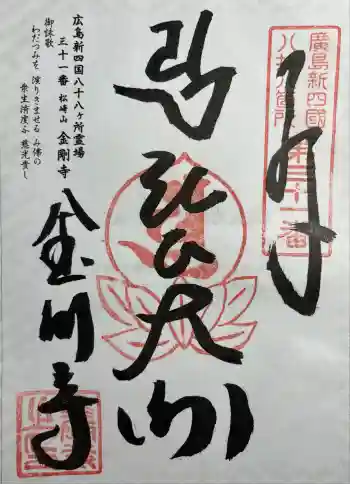 廣島新四國
八拾八箇所
第三十一番
大師
金剛寺
広島新四国八十八ヶ所霊場
三十一番 松崎山 金剛寺
御詠歌
わだつみを 渡りきませる み佛の
衆生済度 慈光貴し